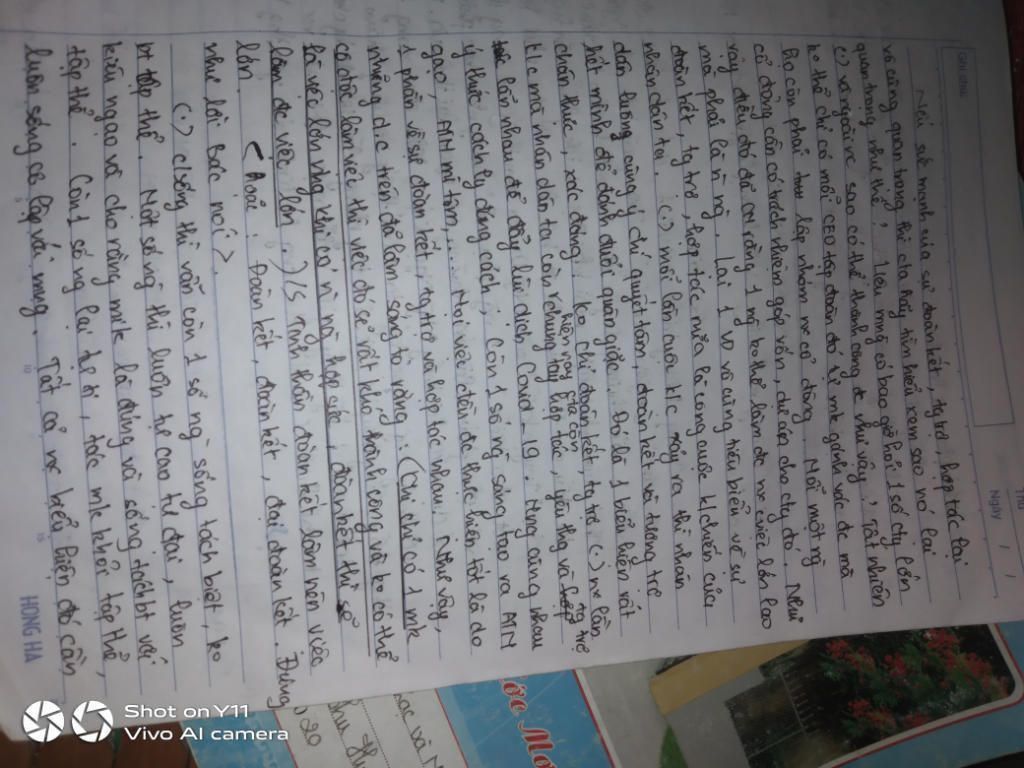 GHI CHUNG
Thứ
Ngày / /
Nói sức mạnh của sự đoàn kết, tg trợ, hợp tác lại
vô cùng quan trọng thì cta hãy tìm hiểu xem sao nó lại
quan trọng như thế. 1 lẽu mng có bao giờ hỏi 1 số cty lớn
(.) và ngoài nc sao có thể thành công đc như vậy, Tất nhiên
ko thể chỉ có mỗi CEO tập đoàn đó tự mk gánh vác đc mà
họ còn phải lập nhóm nx cổ đông. Mỗi một ng
cổ đông cần có trách nhiệm góp vốn, dự án cho cty đó. Như
vậy điều đó để CM rằng 1 ng ko thể làm đc nx việc lớn lao
mà phải là n ng. Lại 1 VD vô cùng tiêu biểu về sự
đoàn kết, tg trợ, hợp tác nữa là công cuộc k/chiến của
nhân dân ta. (.) mỗi lần cuộc k/c nổ ra thì nhân
dân luông cùng ý chí quyết tâm, đoàn kết và tương trợ
hết mình để đánh đuổi quân giặc. Đó là 1 biểu hiện rất
chân thực, xác đáng. Ko chỉ đoàn kết, tg trợ (.) nx lần
k/c mà nhân dân ta còn hiện nay cta còn hợp tác, yêu thg và tg trợ
lẫn nhau để đẩy lùi dịch Covid-19. Nng cùng nhau
ý thức cách ly đúng cách, Còn 1 số ng sáng tạo ra ATM
gạo, ATM mì tôm,... Mọi việc đều đc thực hiện tốt là do
1 phần về sự đoàn kết, tg trợ và hợp tác nhau. Như vậy,
những d/c trên đã làm sáng tỏ rằng: (Chỉ chỉ có 1 mk
cô độc làm việc thì việc đó sẽ rất khó thành công và ko có thể
là việc lớn nhg khi có n ng hợp sức, đoàn kết thì sẽ
làm đc việc lớn.) /S Tinh thần đoàn kết làm nên việc
lớn. < Aoóc. Đoàn kết, đoàn kết, đại đoàn kết. Đúng
như lời Bác nói >.
(.) c/sống thì vẫn còn 1 số ng sống tách biệt, ko
tập thể. Một số ng thì luôn tự cao tự đại, luôn
kiêu ngạo và cho rằng mk là đúng và sống tách bt với
tập thể. Còn 1 số ng lại tự ti, tách mk khỏi tập thể,
luôn sống cô lập với mng. Tất cả nx biểu hiện đó cần
HONG HA
Shot on Y11
Vivo AI camera